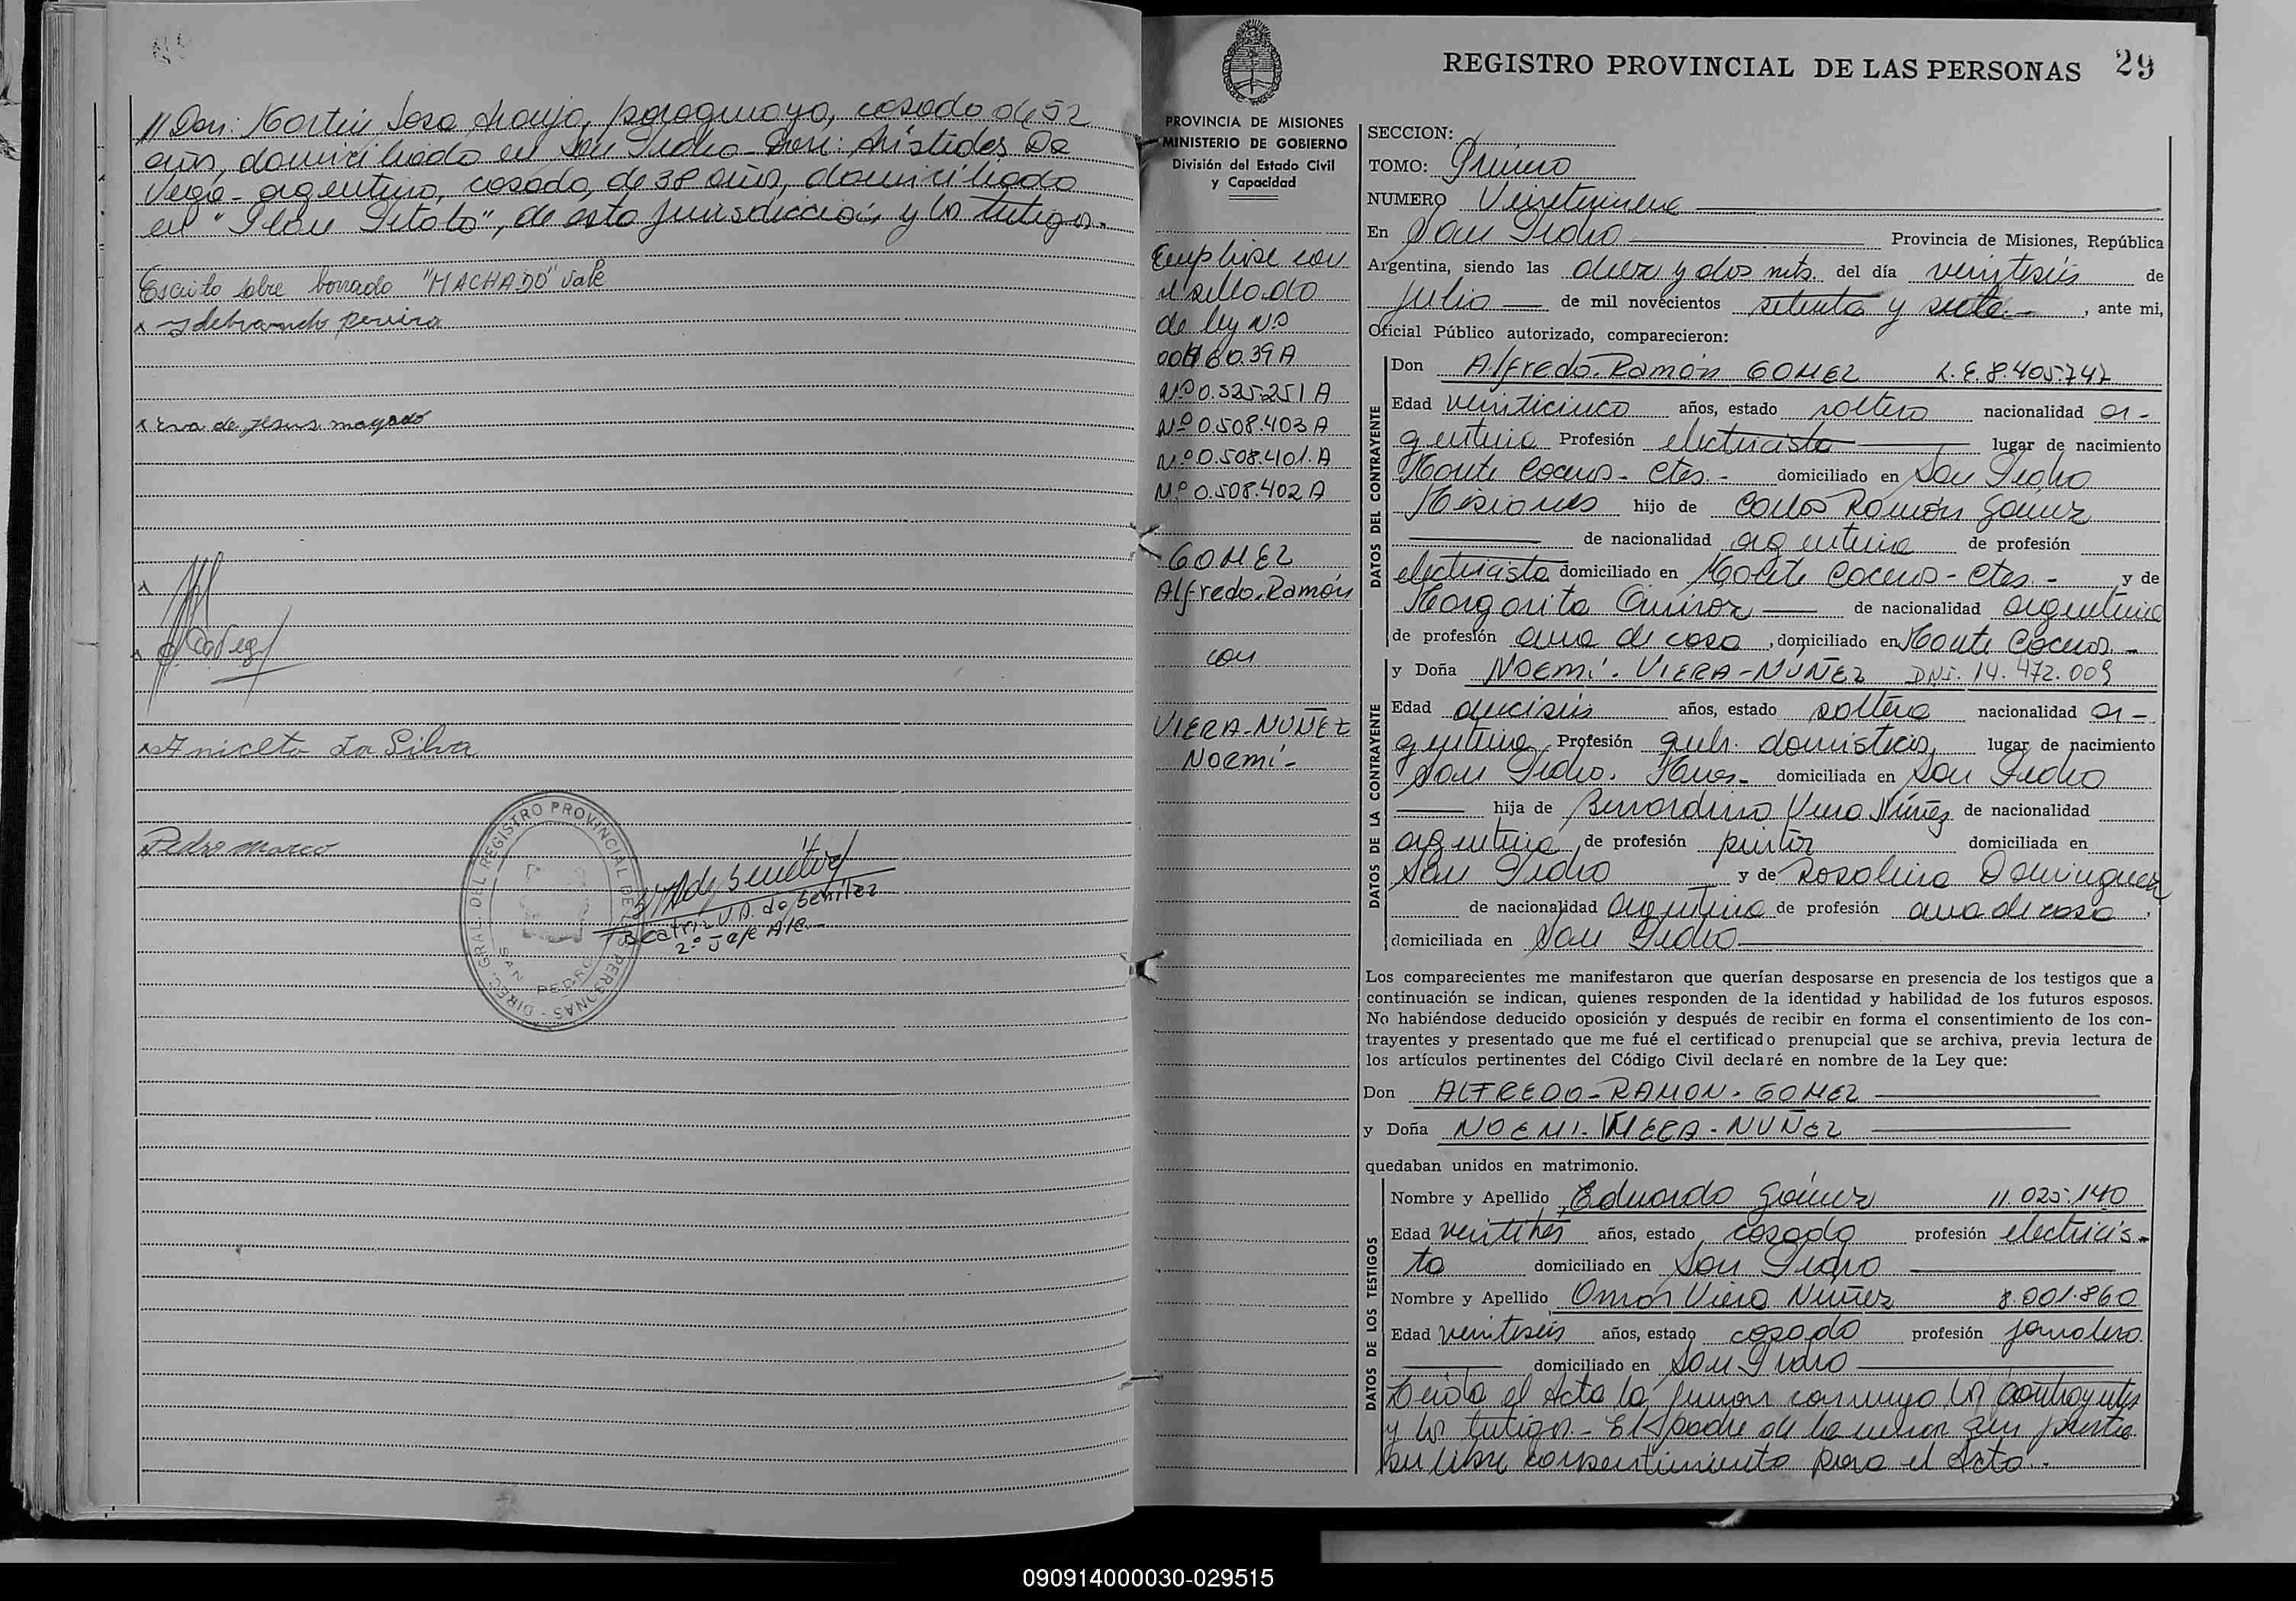 // Don: Martin Sosa Araujo, paraguayo, casado de 52
años, domiciliado en San Pedro - Don: Arístides Da
Vega - argentino, casado, de 38 años, domiciliado
en "Plan Pitoto", de esta jurisdicción, y los testigos.-
Escrito sobre borrado "MACHADO" vale
x Idebrando pereira
x eva de Jesus magado
x
x Da Vega
x Aniceto Da Silva
Pedro Marco
DIREC. GRAL. DEL REGISTRO PROVINCIAL DE LAS PERSONAS -
SAN PEDRO
Beatriz V. A. de Benitez
2º Jefe A/C
PROVINCIA DE MISIONES
MINISTERIO DE GOBIERNO
División del Estado Civil
y Capacidad
con
el sellado
de ley Nº
Nº 0.525251 A
Nº 0.508.403 A
Nº 0.508.401.A
Nº 0.508.402 A
GOMEZ
Alfredo.Ramón
con
VIERA-NUÑEZ
Noemí-
REGISTRO PROVINCIAL DE LAS PERSONAS 29
SECCION:
TOMO: Primero
NUMERO Veintinueve
En San Pedro Provincia de Misiones, República
Argentina, siendo las diez y dos mts. del día veintiseis de
Julio de mil novecientos setenta y siete.- , ante mi,
Oficial Público autorizado, comparecieron:
DATOS DEL CONTRAYENTE
Don Alfredo.Ramón GOMEZ L.E.8.405.747
Edad veinticinco años, estado soltero nacionalidad ar-
gentina Profesión electricista lugar de nacimiento
Monte Caseros - Ctes.- domiciliado en San Pedro
Misiones hijo de Carlos Ramón Gómez
de nacionalidad argentina de profesión
electricista domiciliado en Monte Caseros - Ctes.- y de
Margarita de nacionalidad argentina
de profesión ama de casa , domiciliado en Monte Caseros.-
DATOS DE LA CONTRAYENTE
y Doña NOEMÍ. VIERA-NUÑEZ DNI. 14.472.009
Edad dieciseis años, estado soltera nacionalidad ar-
gentina, Profesión queh. domésticos, lugar de nacimiento
San Pedro. Mnes.- domiciliada en San Pedro
hija de Bernardino Viera Núñez de nacionalidad
argentina, de profesión pintor domiciliada en
San Pedro y de Rosalina Dominguez
de nacionalidad argentina de profesión ama de casa ,
domiciliada en San Pedro
Los comparecientes me manifestaron que querían desposarse en presencia de los testigos que a
continuación se indican, quienes responden de la identidad y habilidad de los futuros esposos.
No habiéndose deducido oposición y después de recibir en forma el consentimiento de los con-
trayentes y presentado que me fué el certificado prenupcial que se archiva, previa lectura de
los artículos pertinentes del Código Civil declaré en nombre de la Ley que:
Don ALFREDO-RAMON-GOMEZ
y Doña NOEMI-VIERA-NUÑEZ
quedaban unidos en matrimonio.
DATOS DE LOS TESTIGOS
Nombre y Apellido Eduardo Gómez 11.025.140
Edad veintitrés años, estado casado profesión electricis-
ta domiciliado en San Pedro
Nombre y Apellido Omar Viera Núñez 8.001.860
Edad veintiseis años, estado casado profesión jornalero
domiciliado en San Pedro
Leída el Acta la firman conmigo los contrayentes
y los testigos.- El padre de la menor presta
su libre consentimiento para el Acto.-
090914000030-029515